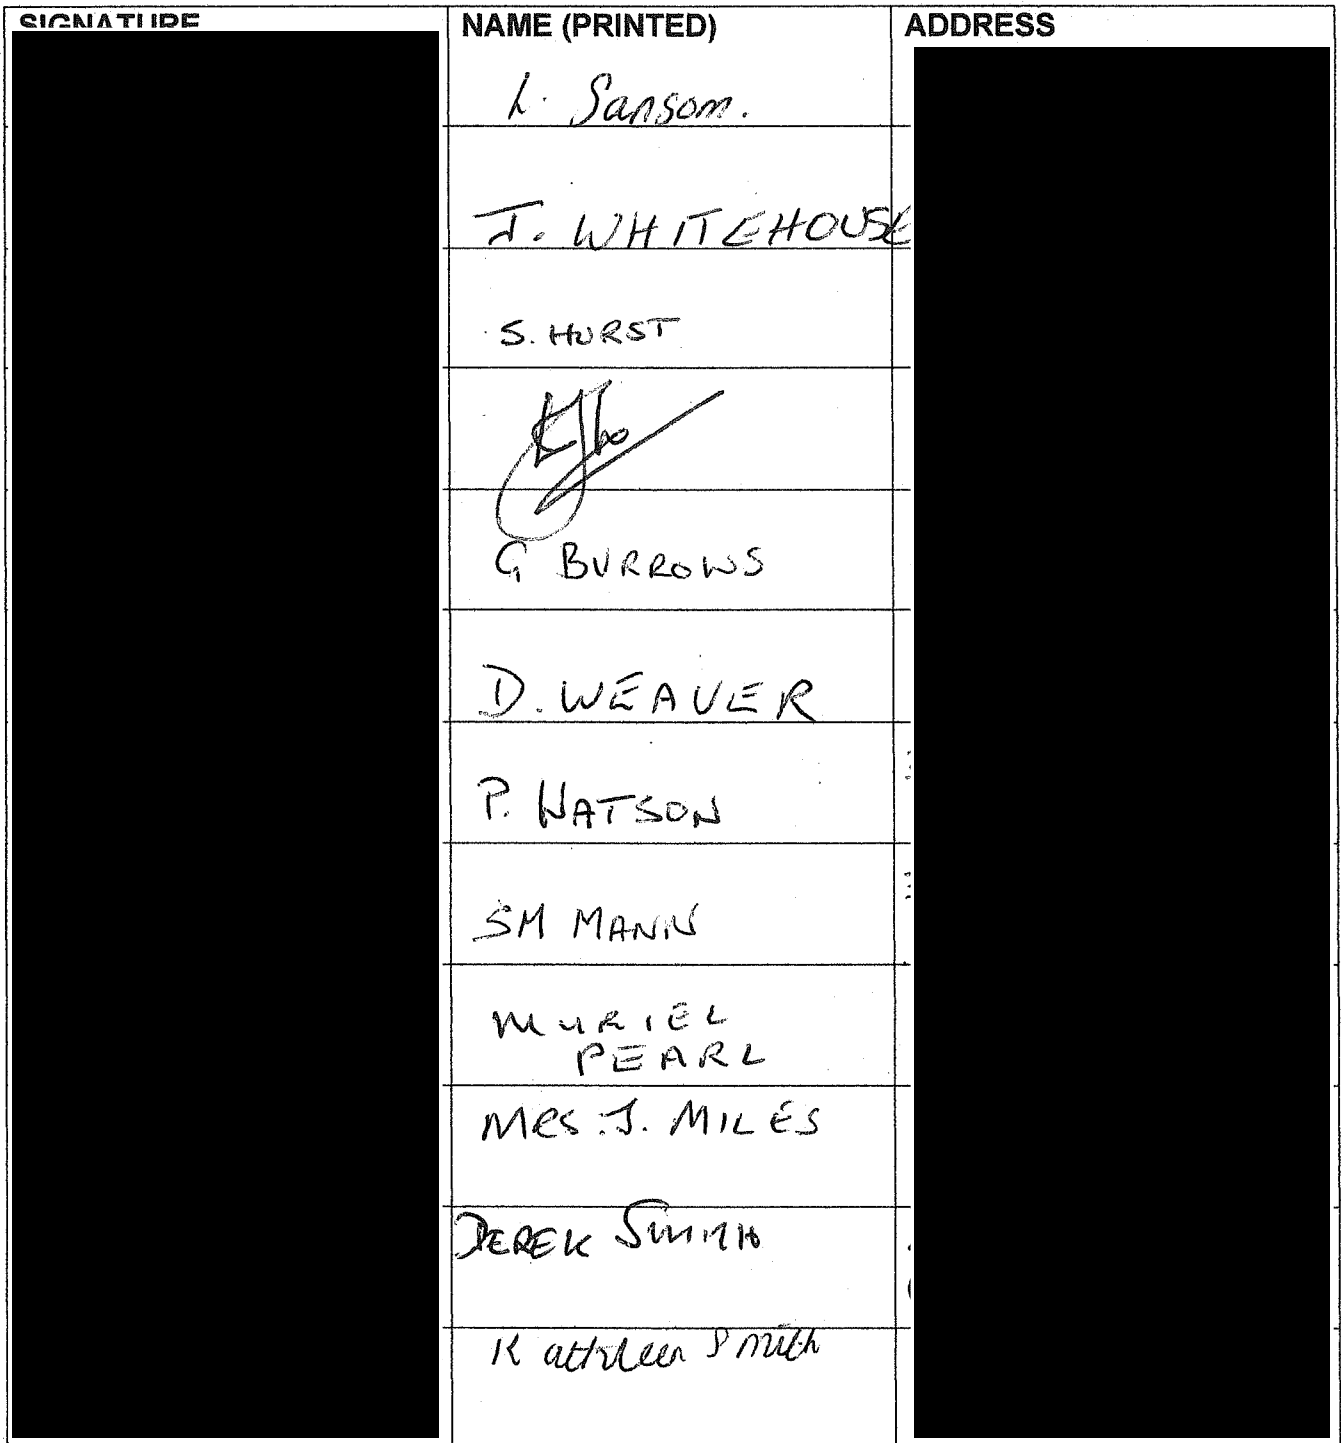 SIGNATURE
NAME (PRINTED)
ADDRESS
L. Sansom.
J. WHITEHOUSE
S. HURST
G BURROWS
D. WEAVER
P. WATSON
SM MANN
MURIEL
PEARL
MRS. J. MILES
DEREK SMITH
Kathleen Smith